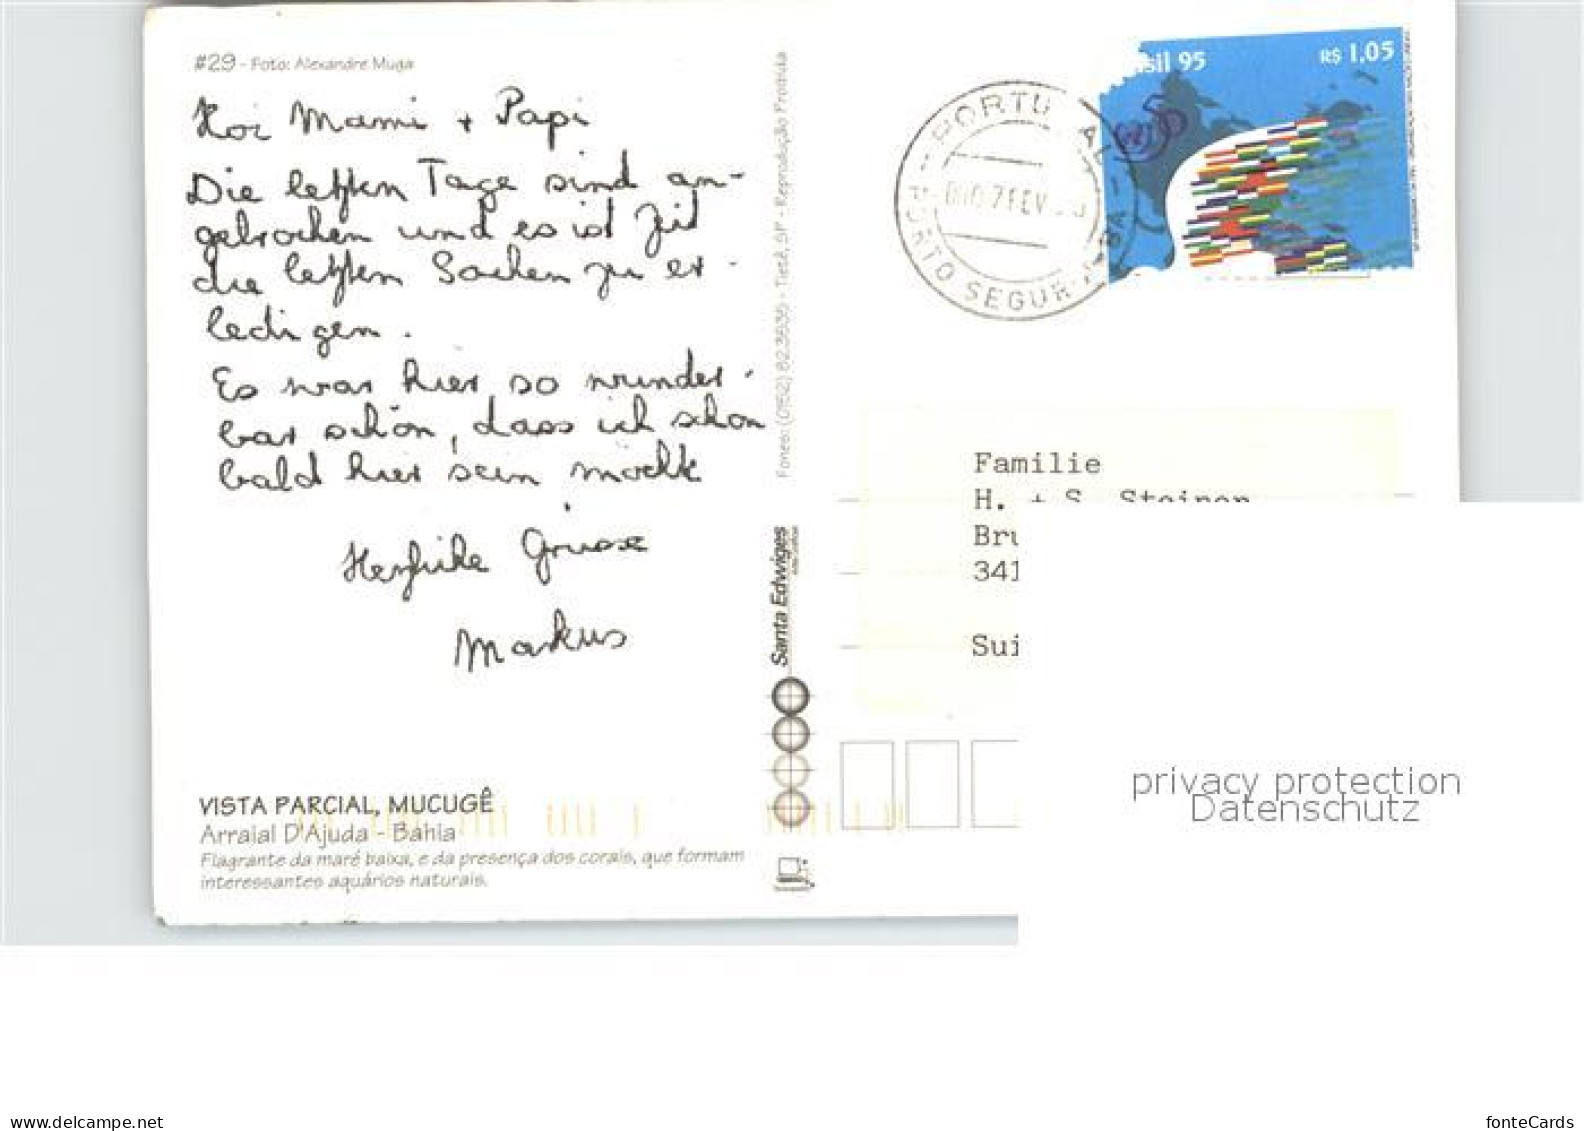 #29 - Foto: Alexandre Muga
Hoi Mami + Papi
Die letzten Tage sind an-
gebrochen und es ist Zeit
die letzten Sachen zu er-
ledigen.
Es war hier so wunder-
bar schön, dass ich schon
bald hier sein möchte
Herzliche Grüsse
Markus
VISTA PARCIAL, MUCUGÊ
Arraial D'Ajuda - Bahia
Flagrante da maré baixa, e da presença dos corais, que formam
interessantes aquários naturais.
Fones: (0152) 82.3636 - Tietê, SP - Reprodução Proibida
Santa Edwiges
sil 95
R$ 1,05
PORTU AL
07 FEV
PORTO SEGUR BA
Familie
H. + S. Steiner
Bru
341
Sui
privacy protection
Datenschutz
www.delcampe.net
fonteCards